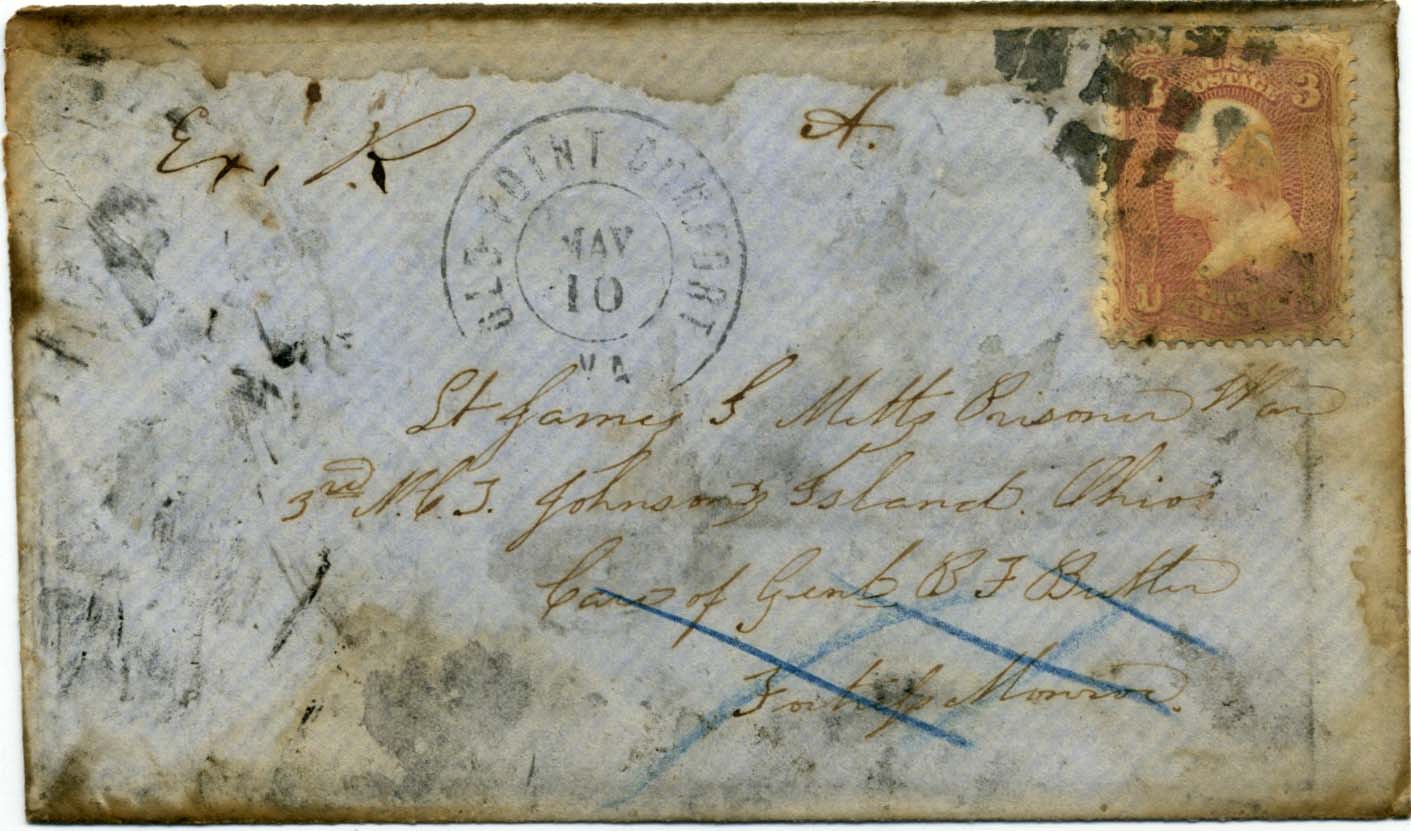 Ex, R A.
OLD POINT COMFORT
MAY
10
VA
U.S. POSTAGE
3 3
U
Lt James I Metts Prisoner War
3rd N.C.I. Johnsons Island. Ohio
Care of Genl B F Butler
Fortress Monroe.